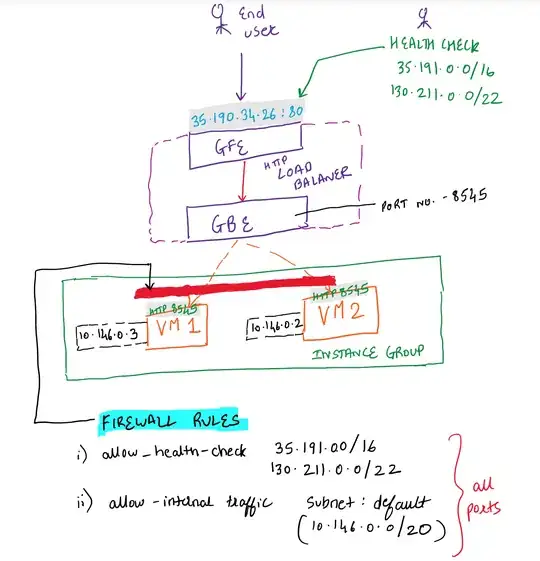 End
user
HEALTH CHECK
35.191.0.0/16
130.211.0.0/22
35.190.34.26:80
GFE
HTTP
LOAD
BALANER
GBE
PORT NO. - 8545
HTTP 8545
HTTP 8545
10.146.0.3
VM 1
10.146.0.2
VM 2
INSTANCE GROUP
FIREWALL RULES
i) allow_health-check 35.191.00/16
130.211.0.0/22
ii) allow-internal traffic Subnet: default
(10.146.0.0/20)
all
ports